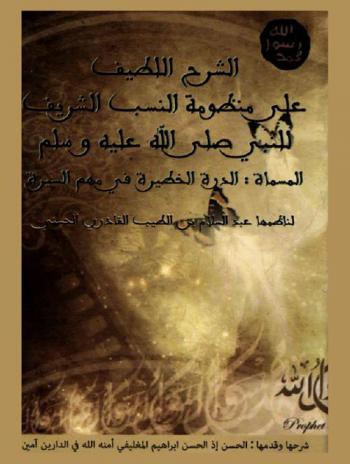 الله
رسول
محمد
الشرح اللطيف
على منظومة النسب الشريف
للنبي صلى الله عليه وسلم
المسماة : الدرة الخطيرة في مهم السيرة
لناظمها عبد السلام بن الطيب القادري الحسني
Prophet
شرحها وقدمها : الحسن إذ الحسن ابراهيم المغليفي أمنه الله في الدارين آمين